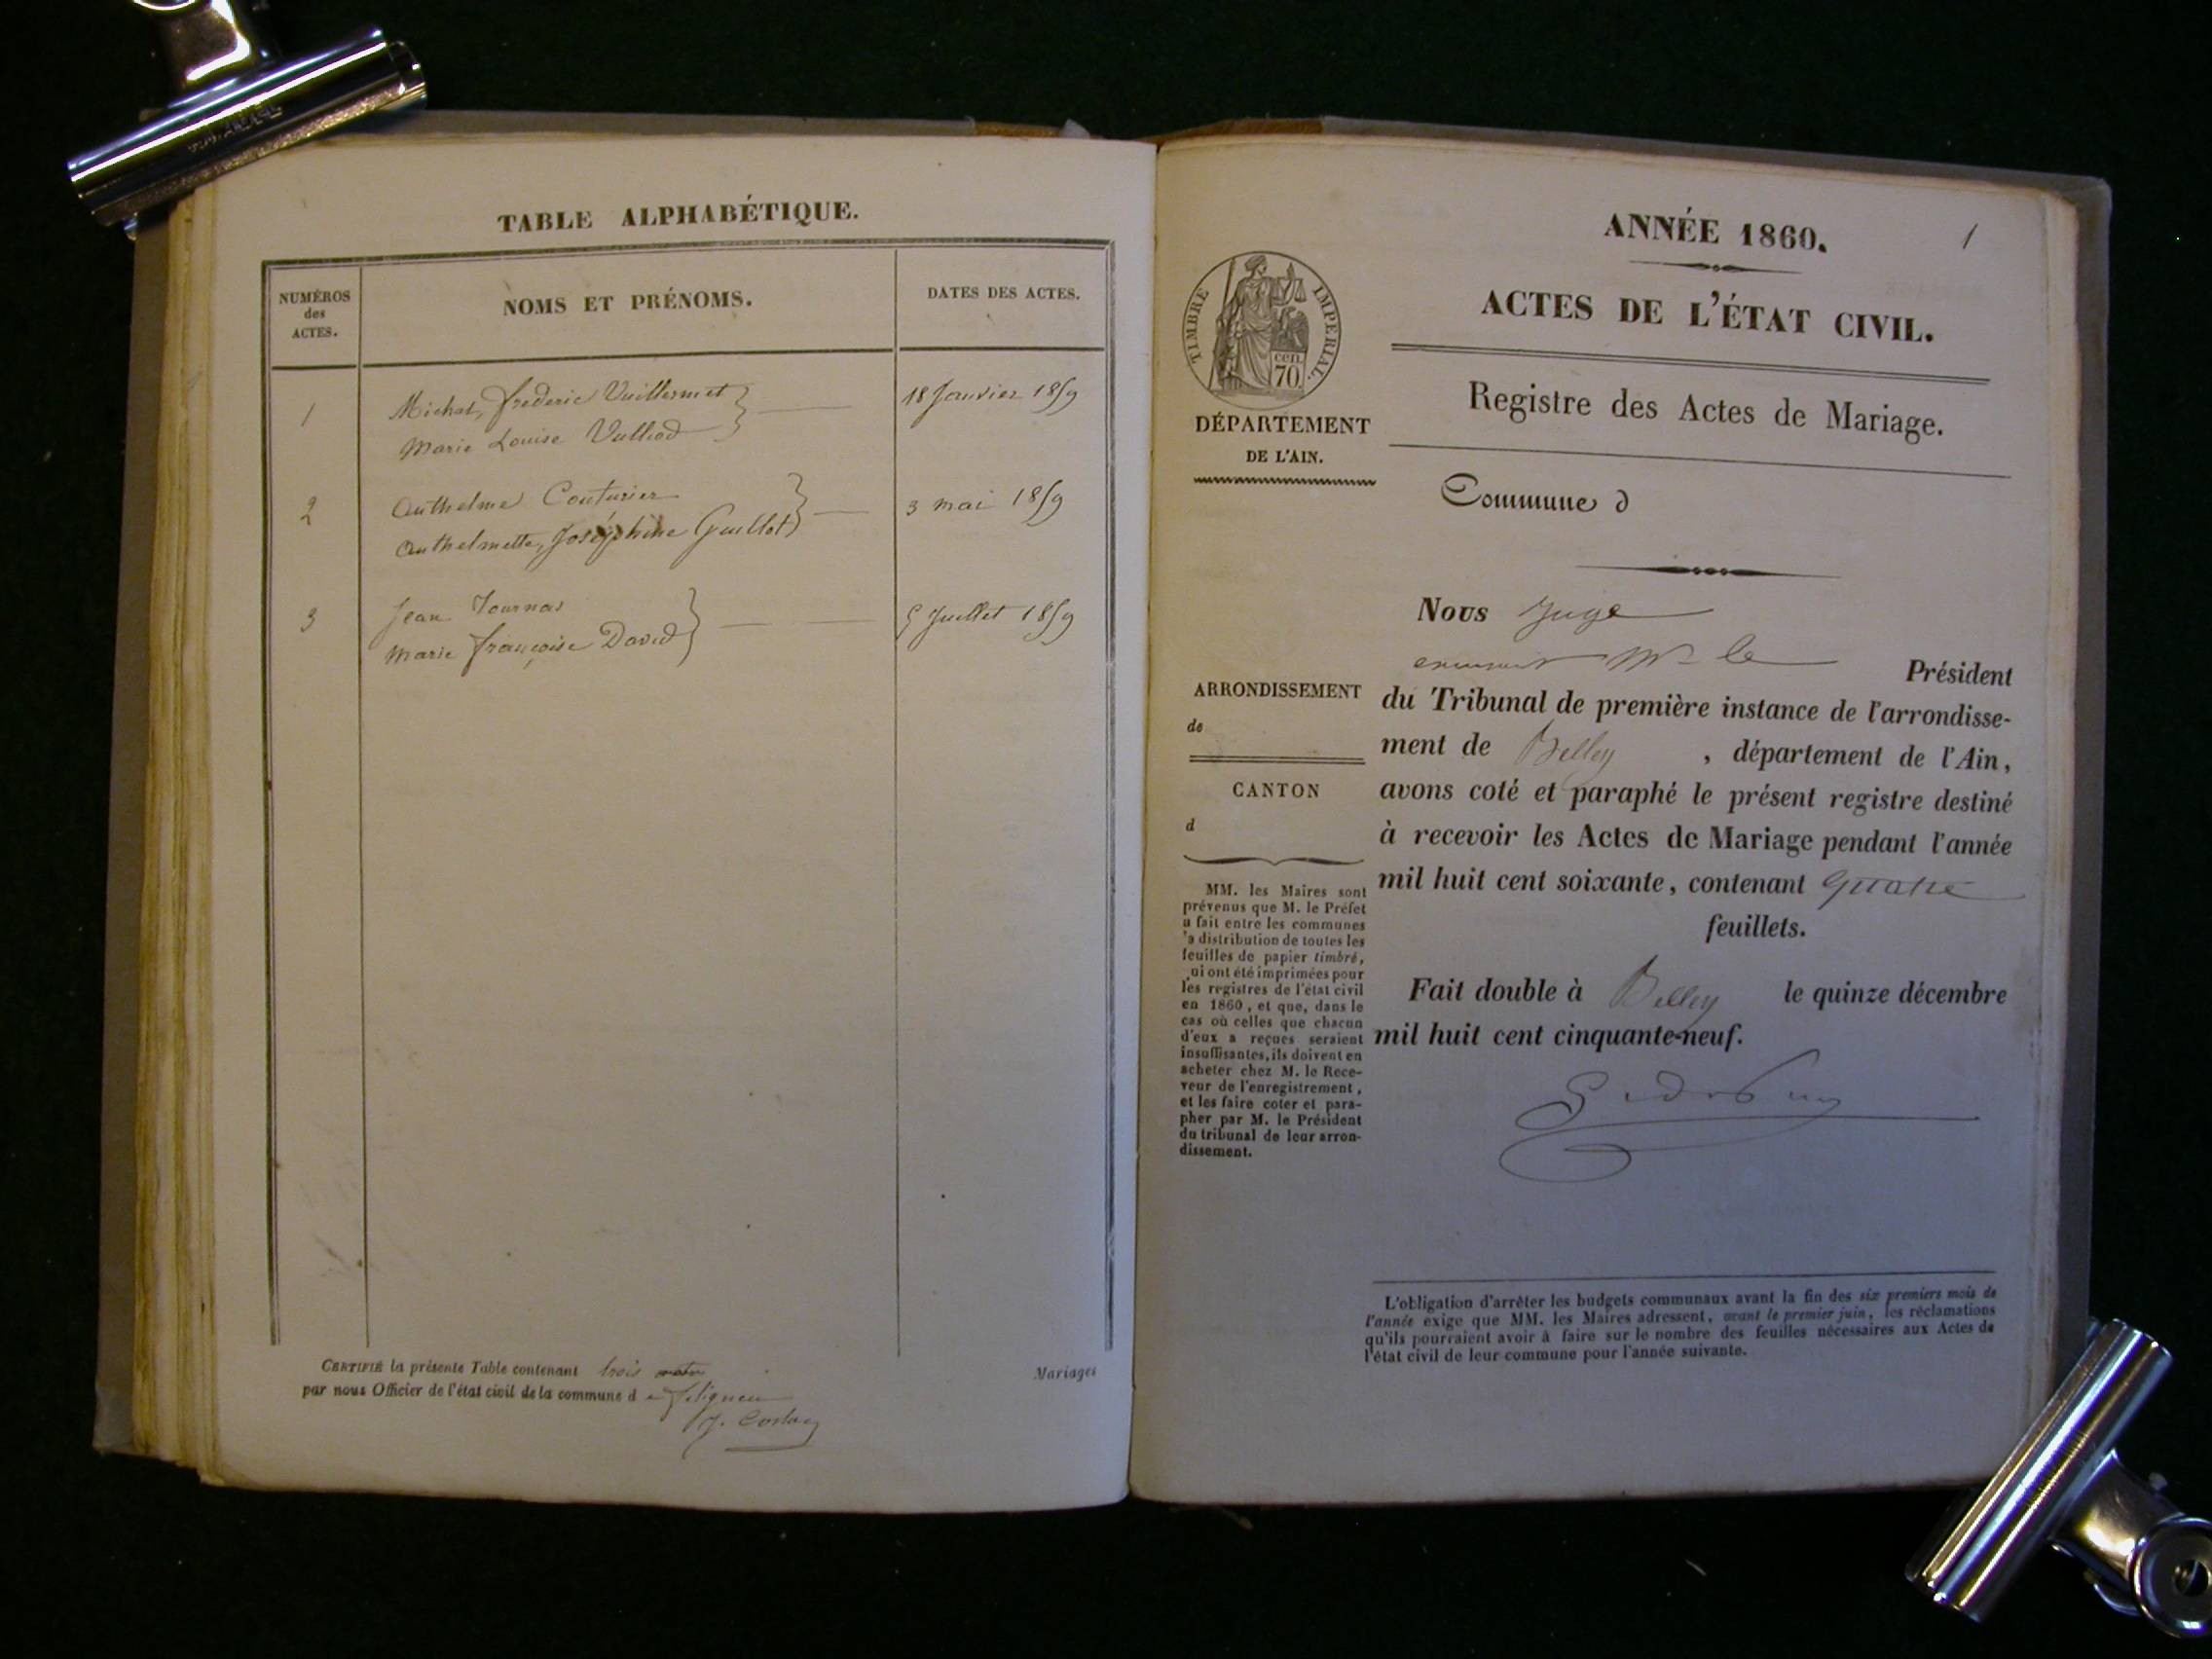 TABLE ALPHABÉTIQUE.
NUMÉROS
des
ACTES.
NOMS ET PRÉNOMS.
DATES DES ACTES.
1
Michel, frederic Vuillermet
Marie Louise Vulliod
18 Janvier 1859
2
Anthelme Couturier
Anthelmette, Joséphine Guillot
3 mai 1859
3
Jean Tournas
Marie françoise David
5 Juillet 1859
CERTIFIÉ la présente Table contenant trois
Mariages
par nous Officier de l'état civil de la commune d
1
ANNÉE 1860.
ACTES DE L'ÉTAT CIVIL.
Registre des Actes de Mariage.
Commune d
TIMBRE IMPERIAL.
cen.
70.
DÉPARTEMENT
DE L'AIN.
ARRONDISSEMENT
de
CANTON
d
MM. les Maires sont
prévenus que M. le Préfet
a fait entre les communes
'a distribution de toutes les
feuilles de papier timbré,
ui ont été imprimées pour
les registres de l'état civil
en 1860, et que, dans le
cas où celles que chacun
d'eux a reçues seraient
insuffisantes, ils doivent en
acheter chez M. le Rece-
veur de l'enregistrement,
et les faire coter et para-
pher par M. le Président
du tribunal de leur arron-
dissement.
Nous Juge
Mr le Président
du Tribunal de première instance de l'arrondisse-
ment de Belley, département de l'Ain,
avons coté et paraphé le présent registre destiné
à recevoir les Actes de Mariage pendant l'année
mil huit cent soixante, contenant quatre
feuillets.
Fait double à Belley le quinze décembre
mil huit cent cinquante-neuf.
L'obligation d'arrêter les budgets communaux avant la fin des six premiers mois de
l'année exige que MM. les Maires adressent, avant le premier juin, les réclamations
qu'ils pourraient avoir à faire sur le nombre des feuilles nécessaires aux Actes de
l'état civil de leur commune pour l'année suivante.